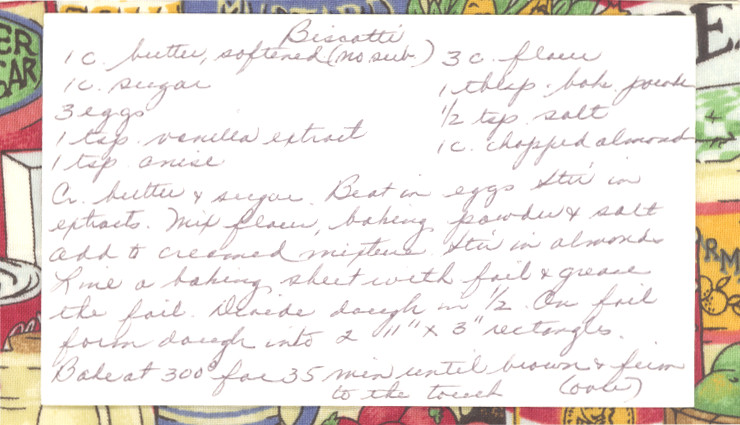 Biscotti
1 c. butter, softened (no sub.)
1 c. sugar
3 eggs
1 tsp. vanilla extract
1 tsp anise
3 c. flour
1 tblsp. bak powder
1/2 tsp. salt
1 c. chopped almonds
Cr. butter & sugar. Beat in eggs Stir in
extracts. Mix flour, baking powder & salt
add to creamed mixture. Stir in almonds
Line a baking sheet with foil & grease
the foil. Divide dough in 1/2. On foil
form dough into 2 11" x 3" rectangles.
Bake at 300° for 35 min until brown & firm
to the touch (over)
MUSTARD
ER
GAR
E
RM